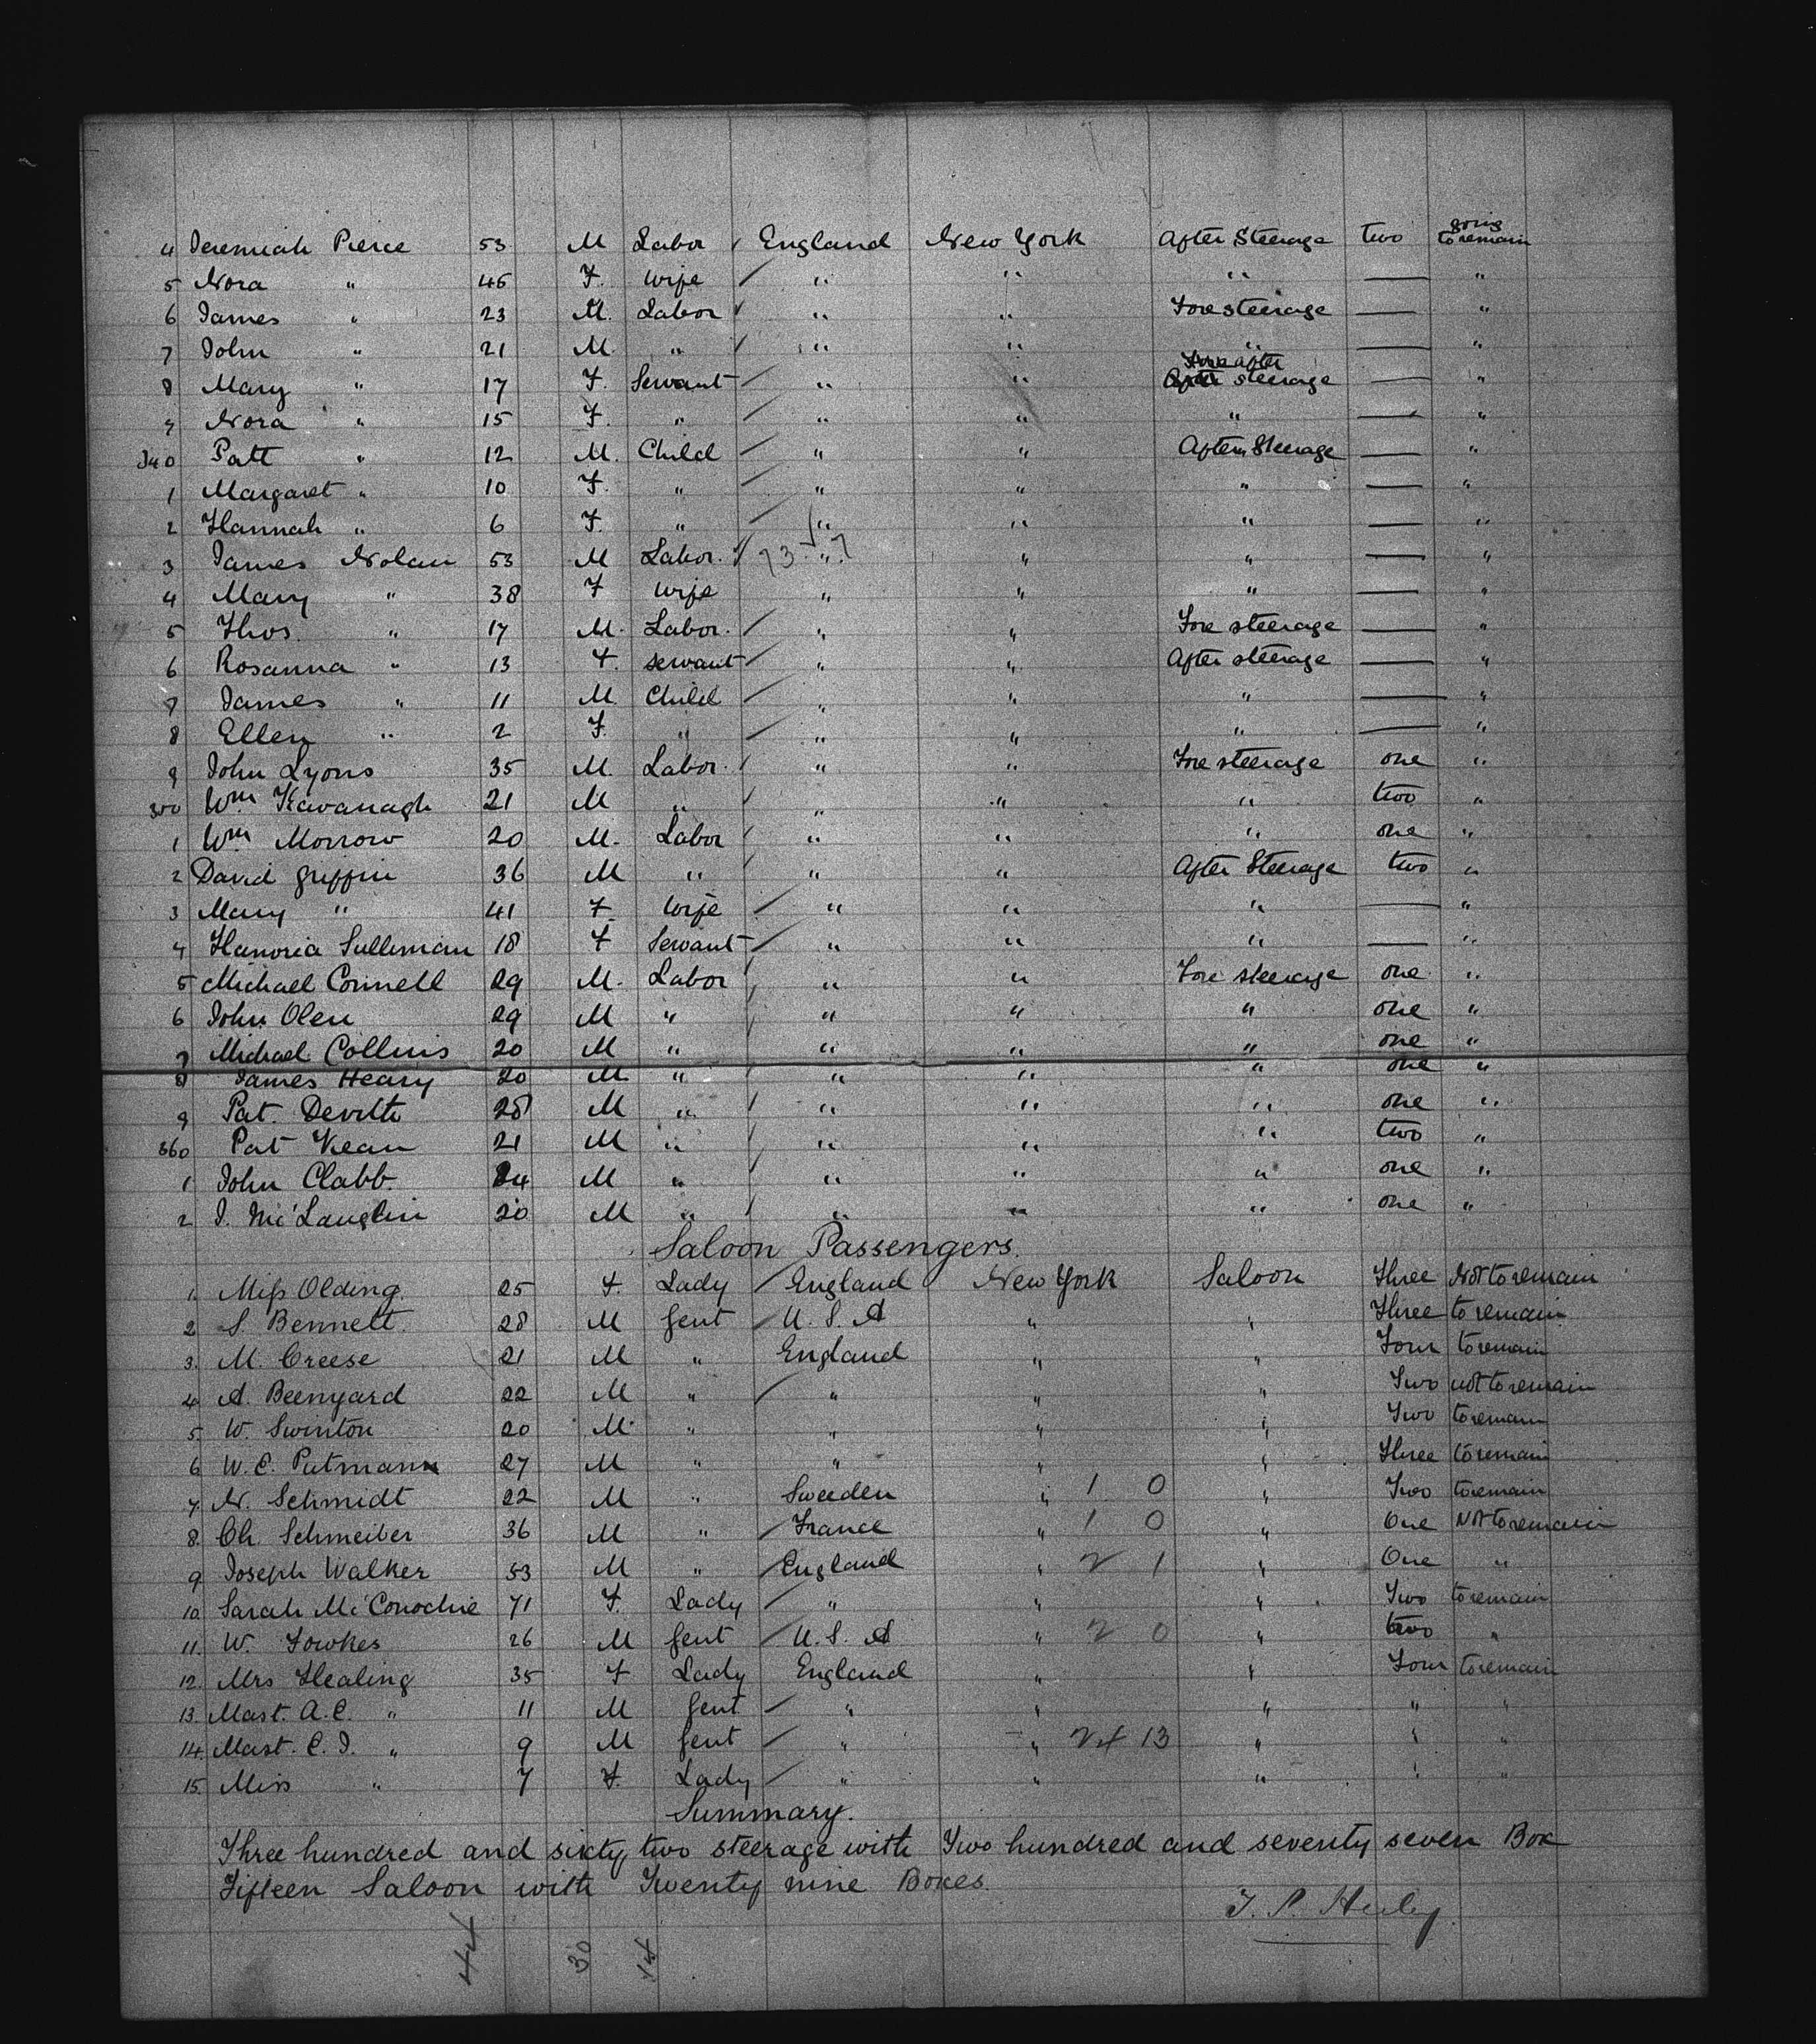 4 Jeremiah Pierce 53 M Labor England New York After Steerage two going to remain
5 Nora " 45 F. Wife " " " — "
6 James " 23 M. Labor " " Fore steerage — "
7 John " 21 M. " " " " — "
8 Mary " 17 F. Servant " " after steerage — "
9 Nora " 15 F. " " " " — "
340 Patt " 12 M. Child " " After Steerage — "
1 Margaret " 10 F. " " " " — "
2 Hannah " 6 F. " " " " — "
3 James Nolan 53 M Labor. " " " — "
4 Mary " 38 F Wife " " " — "
5 Thos. " 17 M. Labor. " " Fore steerage — "
6 Rosanna " 13 F. servant " " After steerage — "
7 James " 11 M. Child " " " — "
8 Ellen " 2 F. " " " " — "
9 John Lyons 35 M. Labor. " " Fore steerage one "
350 Wm Kavanagh 21 M " " " " two "
1 Wm Morrow 20 M. Labor " " " one "
2 David Griffin 36 M " " " After Steerage two "
3 Mary " 41 F. Wife " " " — "
4 Hanoria Sullivan 18 F Servant " " " — "
5 Michael Connell 29 M. Labor " " Fore steerage one "
6 John Olen 29 M " " " " one "
7 Michael Collins 20 M " " " " one "
8 James Heary 20 M " " " " one "
9 Pat. 28 M " " " " one "
360 Pat Kean 21 M " " " " two "
1 John Clabb. 24 M " " " " one "
2 J. Mc'Lauglin 20 M " " " " one "
Saloon Passengers.
1. Miss Olding. 25 F. Lady England New York Saloon Three Not to remain
2 S. Bennett. 28 M Gent U. S. A " " Three to remain
3. M. Creese 21 M " England " " Four to remain
4 A. Beenyard 22 M " " " " Two not to remain
5. W. Swinton 20 M " " " " Two to remain
6 W. C. Putmann 27 M " " " " Three to remain
7. N. Schmidt 22 M " Sweeden " 1 0 " Two to remain
8. Ch. Schmeiber 36 M " France " 1 0 " One Not to remain
9 Joseph Walker 53 M " England " 2 1 " One "
10. Sarah Mc'Conochie 71 F. Lady " " " Two to remain
11. W. Fowkes 26 M Gent U. S. A " 2 0 " two "
12. Mrs Healing 35 F Lady England " " Four to remain
13. Mast. A. C. " 11 M Gent " " " " "
14. Mast. C. J. " 9 M Gent " " 24 13 " " "
15. Miss " 7 F. Lady " " " " "
Summary.
Three hundred and sixty two steerage with Two hundred and seventy seven Box
Fifteen Saloon with Twenty nine Boxes.
44 30 14